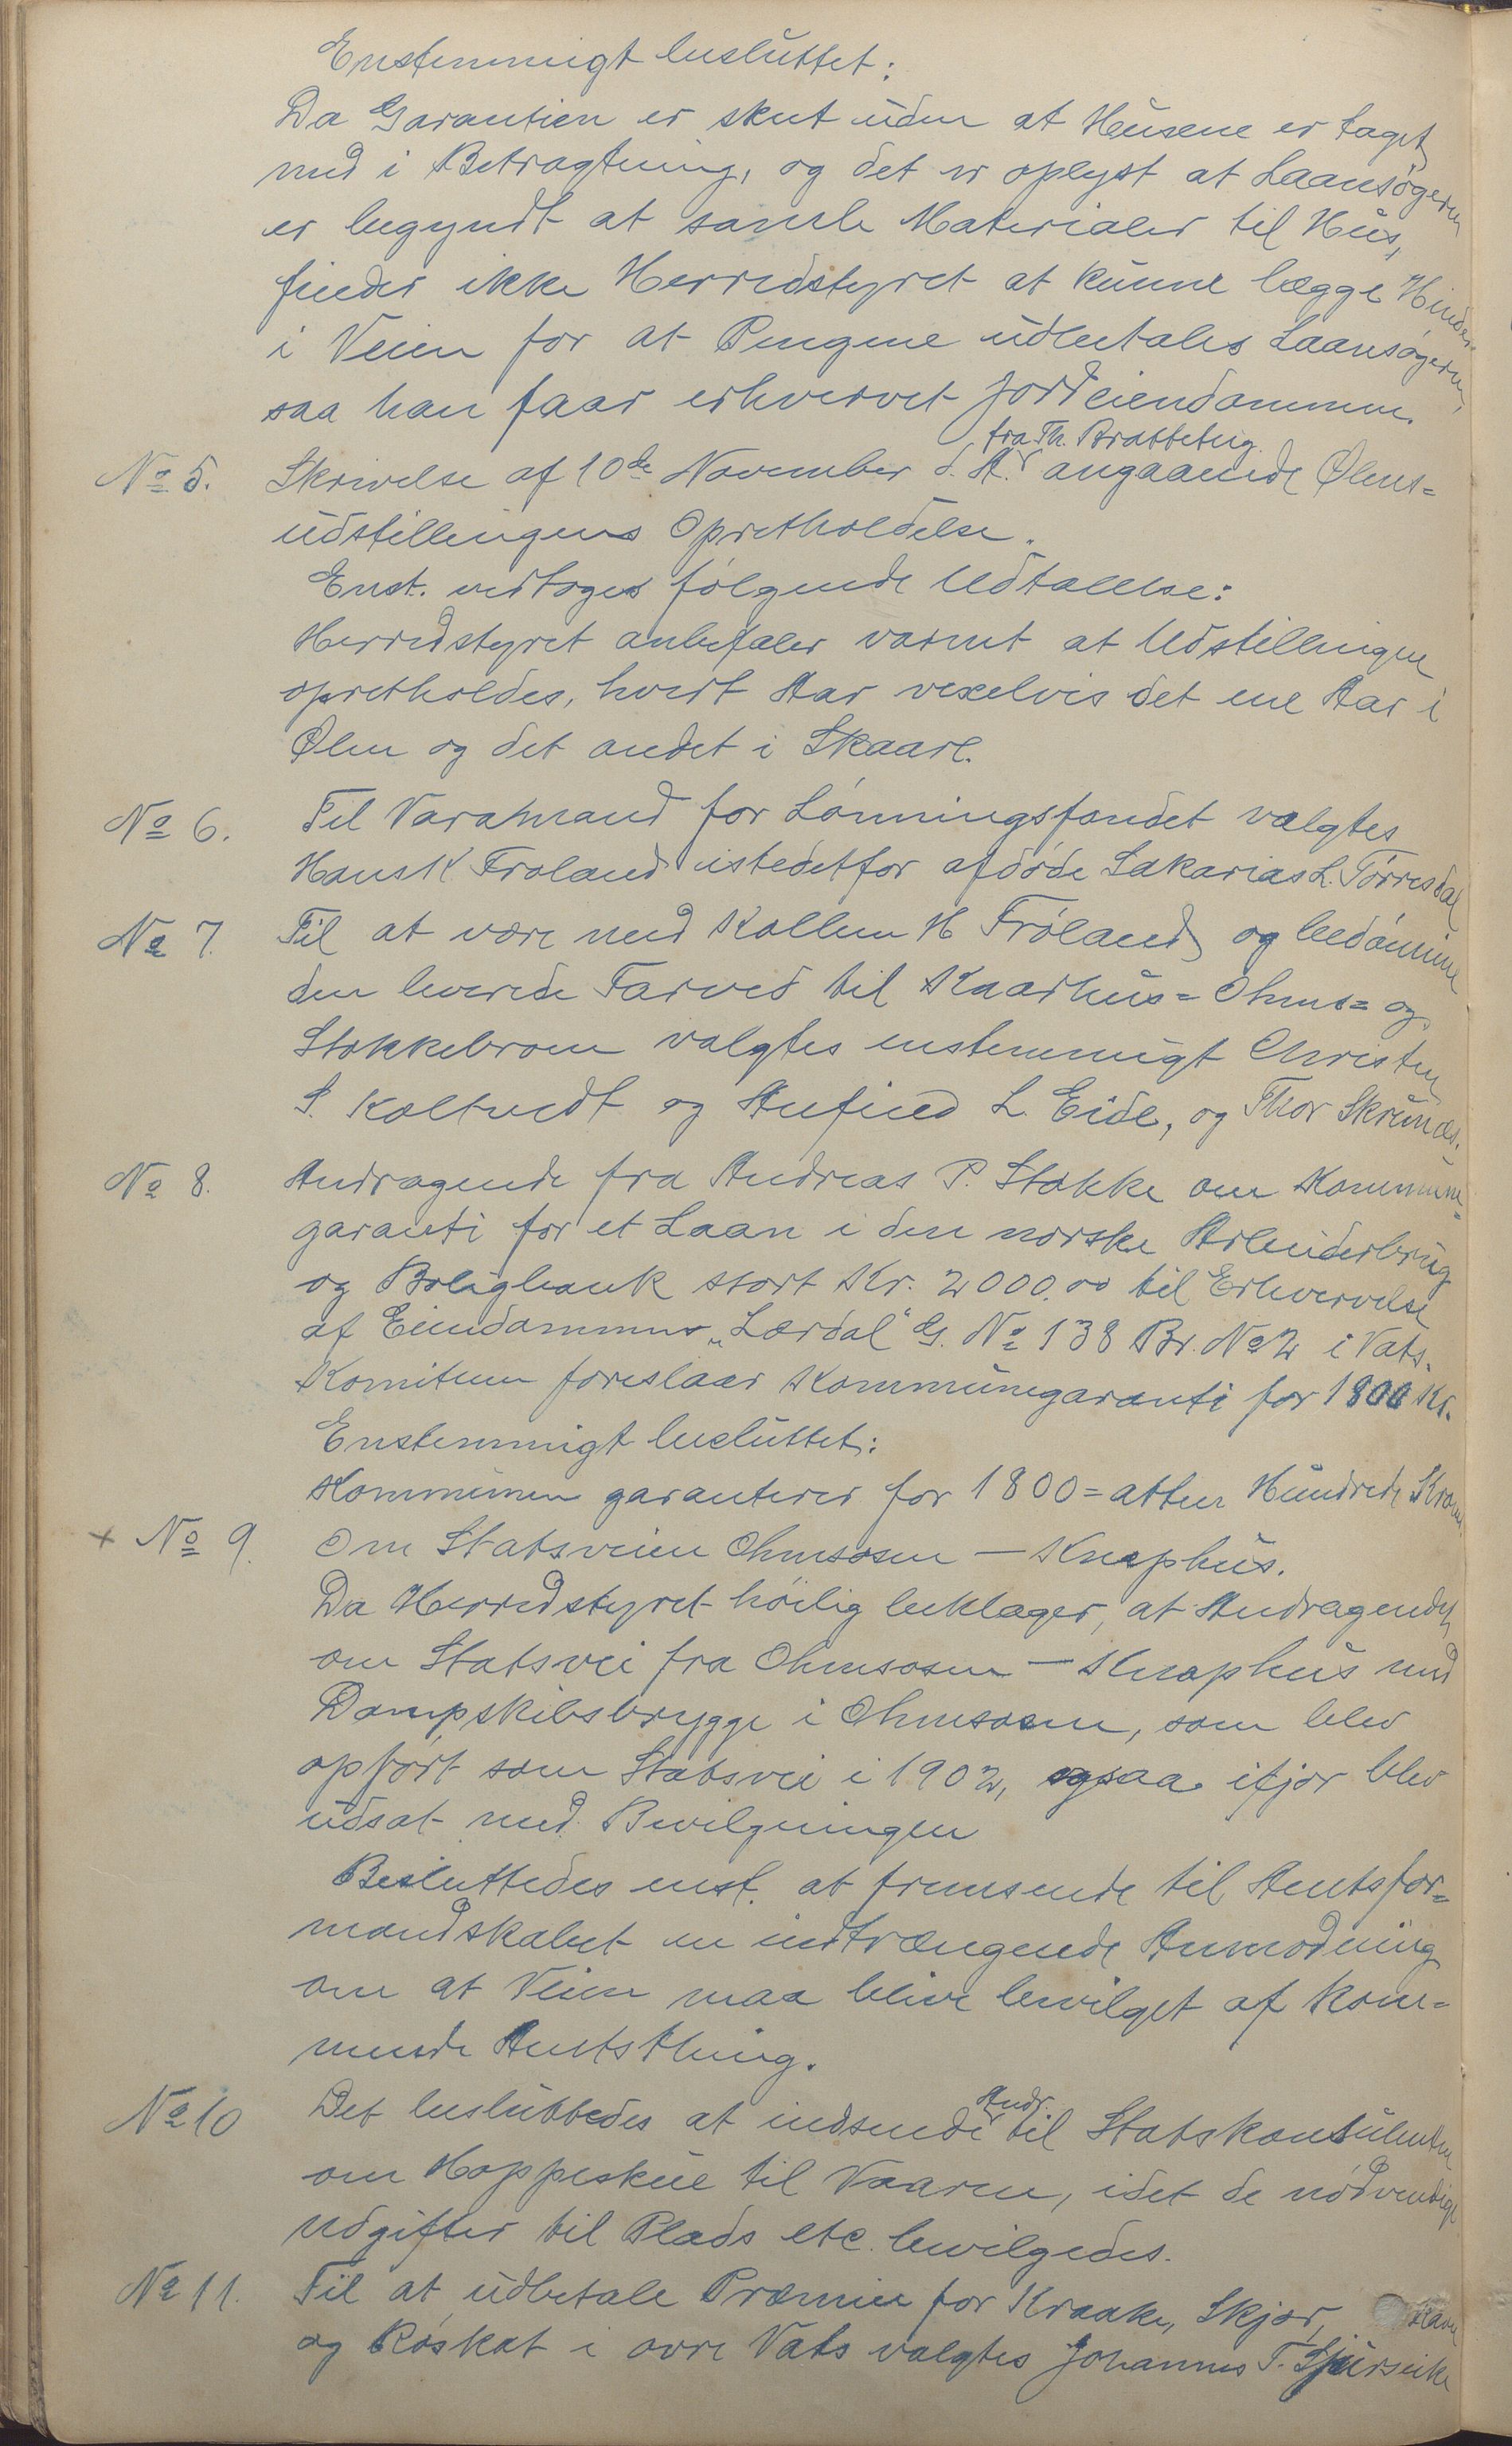 Enstemmigt besluttet:
Da Garantien er skeet uden at Husene er taget
med i Betragtning, og det er oplyst at Laansøgeren
er begyndt at samle Materialer til Hus,
finder ikke Herredstyret at kunne lægge Hinder
i Veien for at Pengene udbetales Laansøgeren,
saa han faar erhvervet Jordeiendommen.
fra Th. Bratteteig
No 5. Skrivelse af 10de November d. A. angaaende Ølens=
udstillingens Opretholdelse.
Enst. vedtoges følgende Udtalelse:
Herredstyret anbefaler varmt at Udstillingen
opretholdes, hvert Aar vexelvis det ene Aar i
Ølen og det andet i Skaare.
No 6. Til Varamand for Lønningsfondet valgtes
Hans K. Frøland istedetfor afdøde Sakarias L. Tørresdal
No 7. Til at være med Kollen H Frøland og bedømme
den leverede Farved til Kaarhus= Ohms= og
Stokkebroen valgtes enstemmigt Christen
S. Koltvedt og Anfind L. Eide, og Thor Skrunes.
No 8. Andragende fra Andreas P. Stokke om Kommune=
garanti for et Laan i den norske Arbeiderbrug
og Boligbank stort Kr. 2000.00 til Erhvervelse
af Eiendommen „Lærdal“ G. No 138 Br. No 2 i Vats.
Komiteen foreslaar Kommunegaranti for 1800 Kr.
Enstemmigt besluttet:
Kommunen garanterer for 1800= atten Hundrede Kroner
+ No 9. Om Statsveien Ohmsosen — Knaphus.
Da Herredstyret høilig beklager, at Andragendet
om Statsvei fra Ohmsosen — Knaphus med
Dampskibsbrygge i Ohmsosen, som blev
opført som Statsvei i 1902, ogsaa ifjor blev
udsat med Bevilgningen
Besluttedes enst. at fremsende til Amtsfor=
mandskabet en indtrængende Anmodning
om at Veien maa blive bevilget af kom=
mende Amtsthing.
Andr.
No 10 Det besluttedes at indsende til Statskonsulenten
om Hoppeskue til Vaaren, idet de nødvendige
udgifter til Plads etc. bevilgedes.
No 11. Til at udbetale Præmier for Kraake, Skjør, Ravn
og Røskat i øvre Vats valgtes Johannes T.